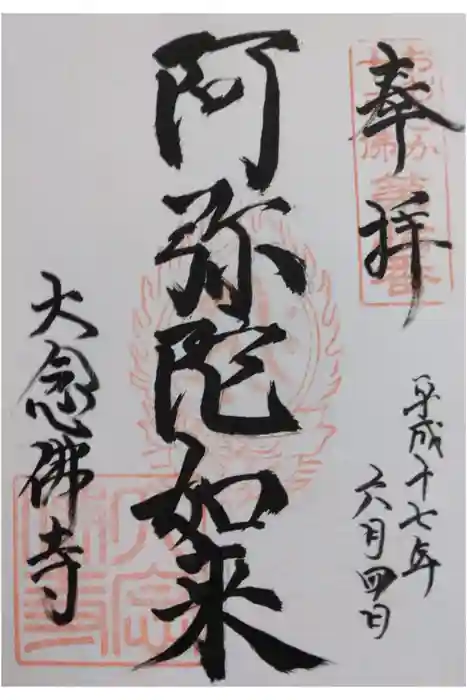 奉拝
平成十七年
六月四日
阿弥陀如来
大念佛寺